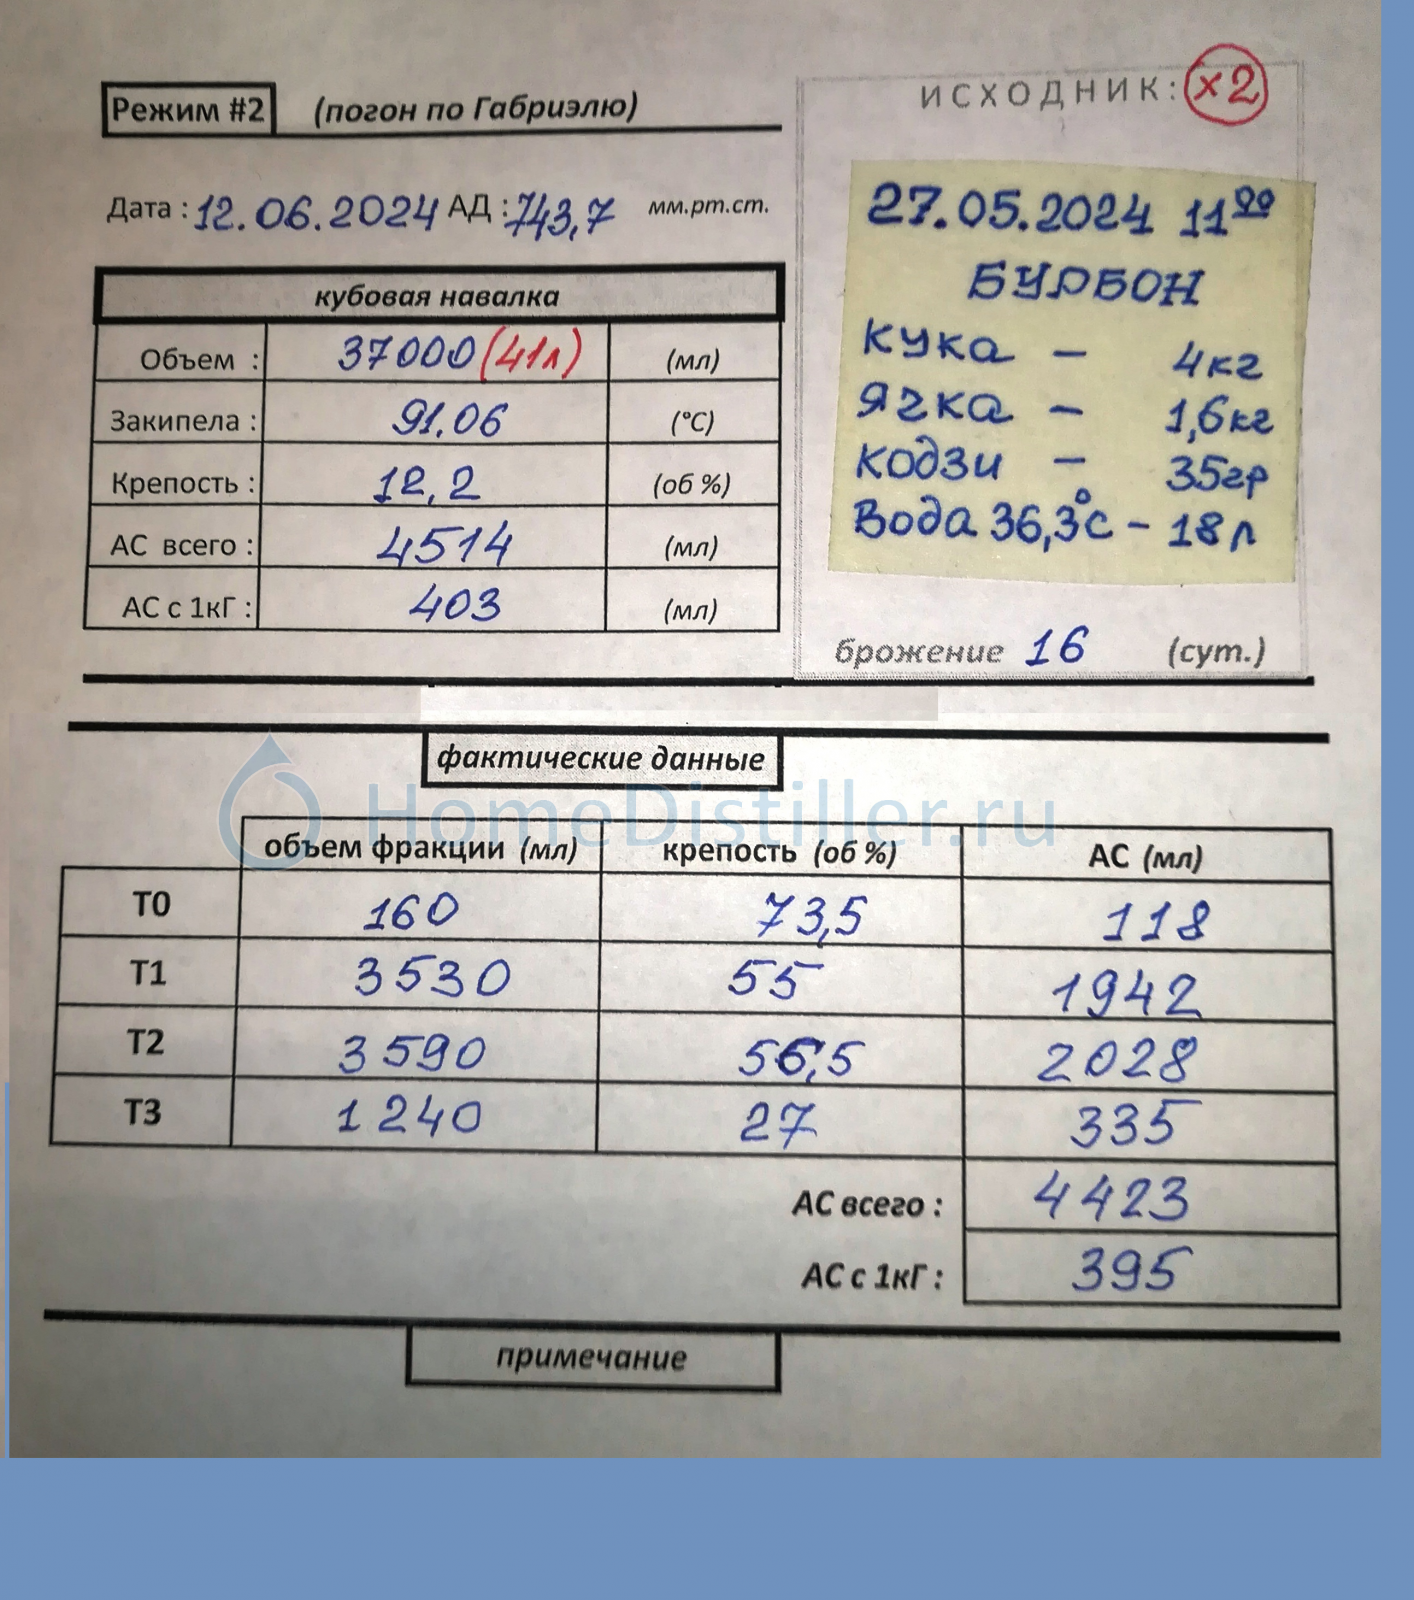 Режим #2 (погон по Габриэлю)
Дата : 12.06.2024 АД : 743,7 мм.рт.ст.
кубовая навалка
Объем : 37000 (41л) (мл)
Закипела : 91.06 (°С)
Крепость : 12,2 (об %)
АС всего : 4514 (мл)
АС с 1кГ : 403 (мл)
ИСХОДНИК: ×2
27.05.2024 11⁰⁰
БУРБОН
Кука – 4кг
Ячка – 1,6кг
Кодзи – 35гр
Вода 36,3°С – 18л
брожение 16 (сут.)
фактические данные
HomeDistiller.ru
объем фракции (мл) крепость (об %) АС (мл)
Т0 160 73,5 118
Т1 3530 55 1942
Т2 3590 56,5 2028
Т3 1240 27 335
АС всего : 4423
АС с 1кГ : 395
примечание